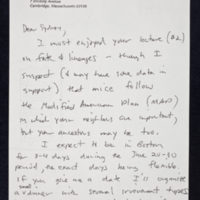 Cambridge, Massachusetts 02138
Dear Sydney,
I most enjoyed your lecture (#2)
on fate & lineages – though I
suspect (& may have some data in
support) that mice follow
the Modified American Plan (MAP)
in which your neighbors are important,
but your ancestors may be too.
I expect to be in Boston
for days during the June 24-30
period, the exact days being flexible.
If you give me a date I'll organize
a small dinner with several